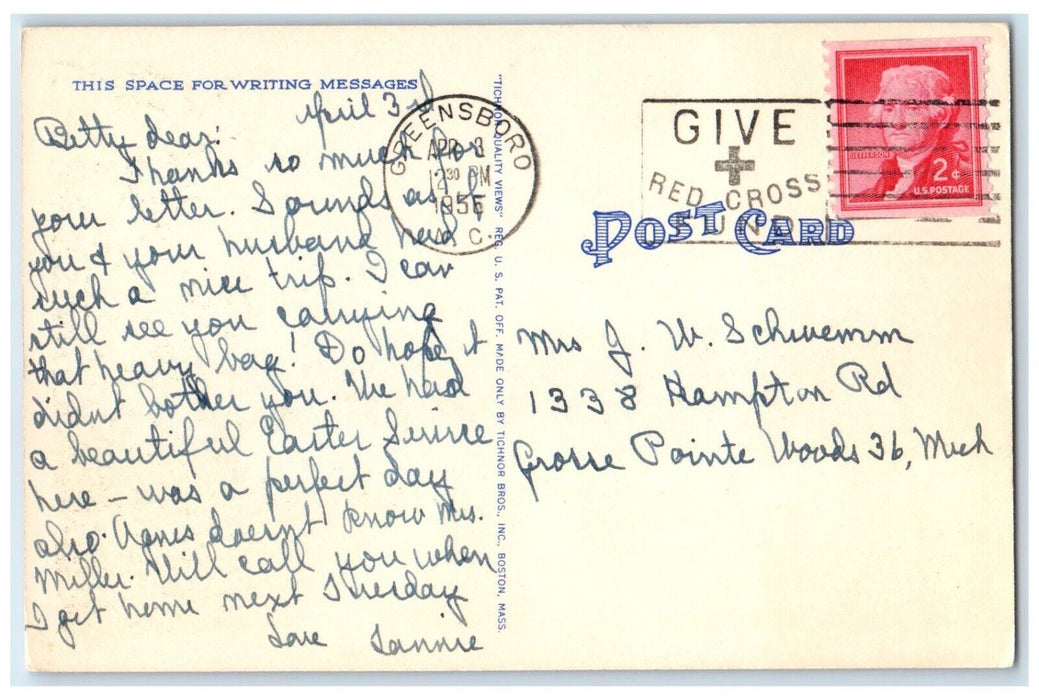 THIS SPACE FOR WRITING MESSAGES
April 3rd
Betty dear:
Thanks so much for
your letter. Sounds as if
you & your husband had
such a nice trip. I can
still see you carrying
that heavy bag! Do hope it
didnt bother you. We had
a beautiful Easter Service
here – was a perfect day
also. Agnes doesnt know Mrs.
Miller. Will call you when
I get home next Tuesday
Love Fannie
"TICHNOR QUALITY VIEWS" REG. U. S. PAT. OFF. MADE ONLY BY TICHNOR BROS., INC., BOSTON, MASS.
GREENSBORO
APR 3
12 30 PM
1956
N. C.
GIVE
RED CROSS
FUND
JEFFERSON
2¢
U.S. POSTAGE
POST CARD
Mrs J. W. Schwemm
1338 Hampton Rd
Grosse Pointe Woods 36, Mich